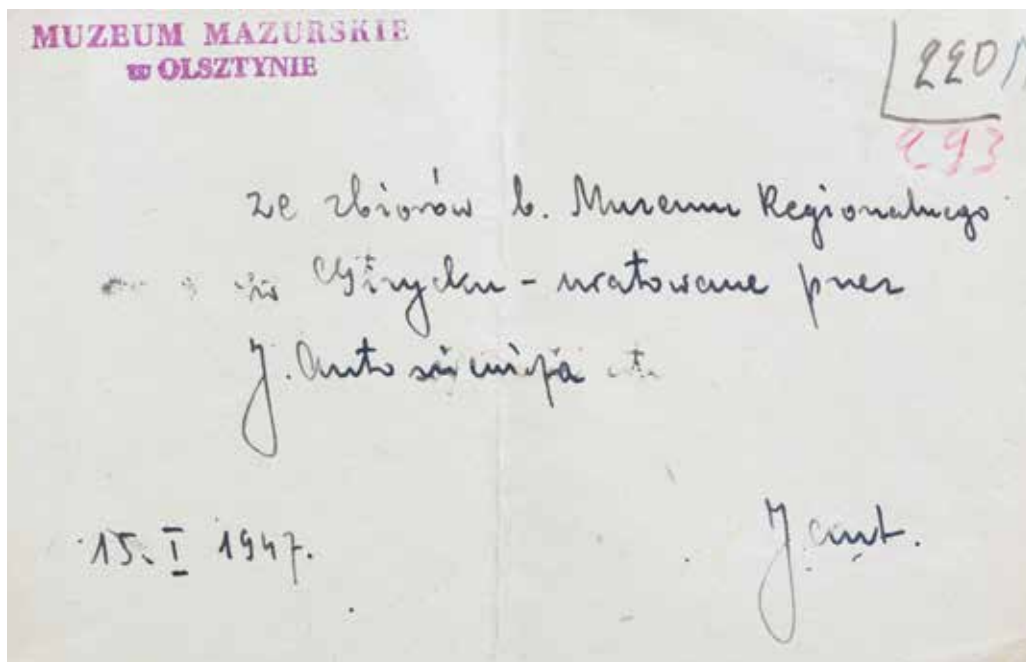 MUZEUM MAZURSKIE
w OLSZTYNIE
220/
293
ze zbiorów b. Muzeum Regionalnego
w Giżycku - uratowane przez
J. Antoniewicza
15. I 1947.
J. Ant.